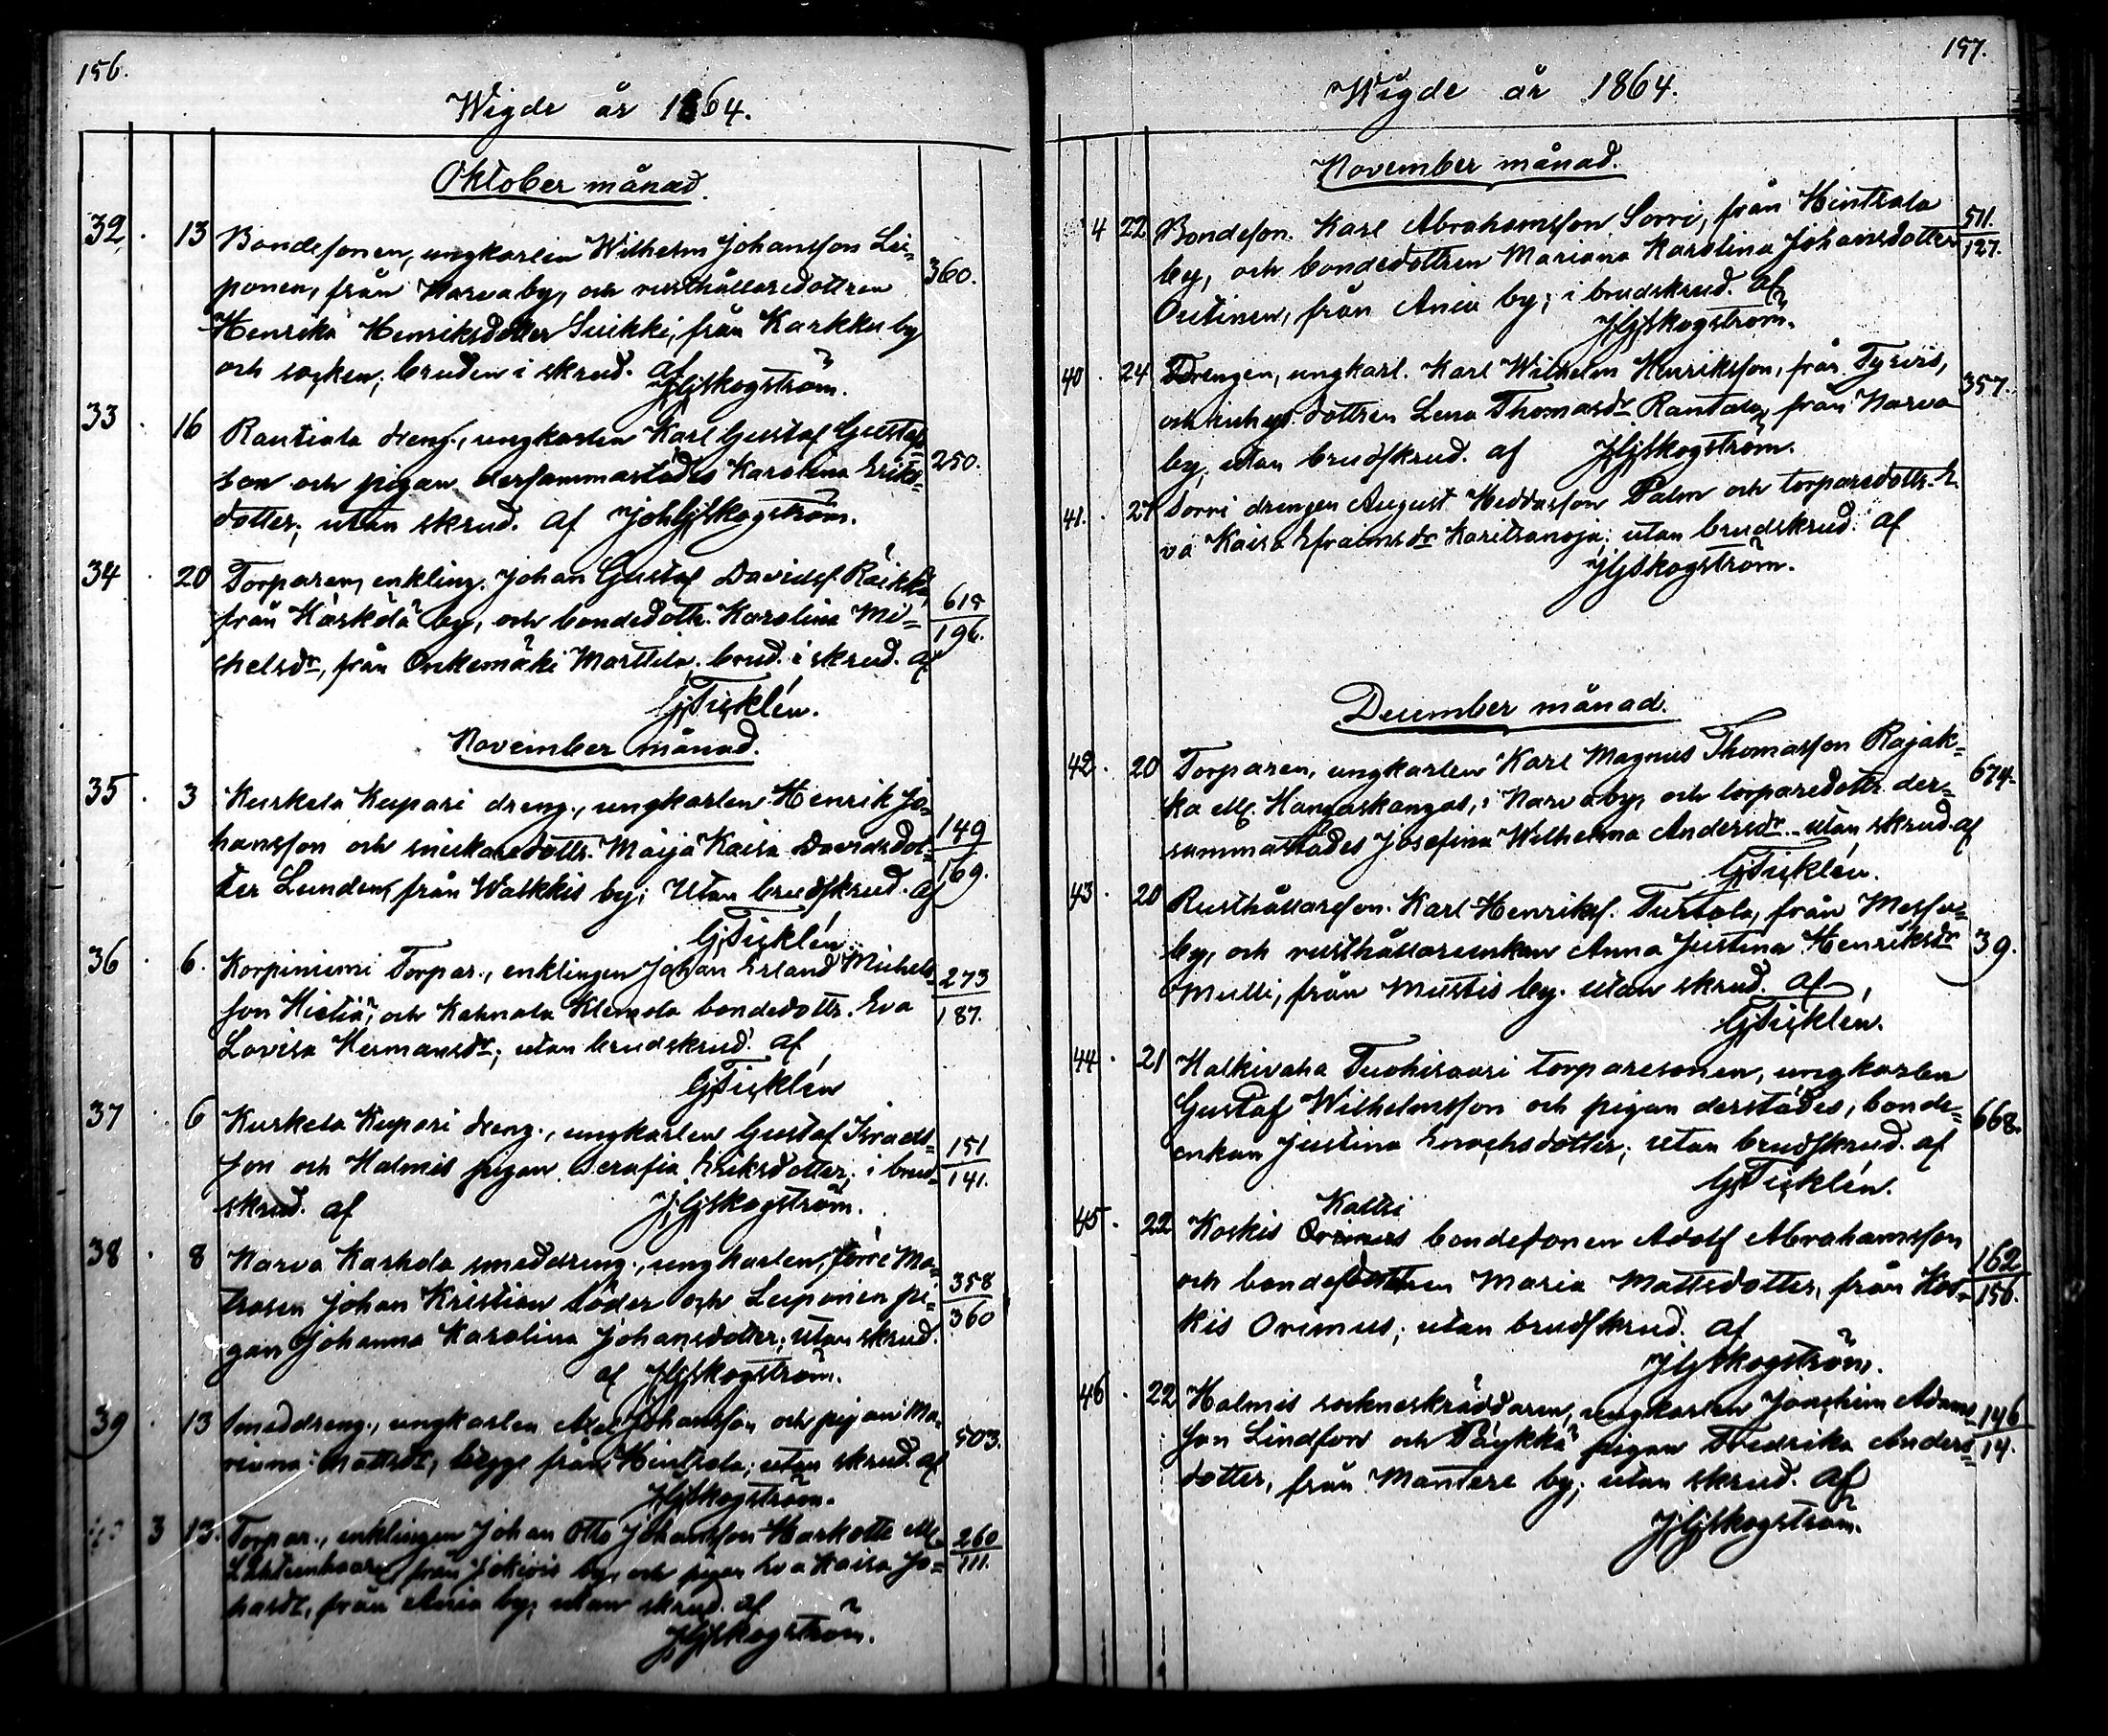 156.
Wigde år 1864.
Oktober månad.
32. 13 Bondesonen, ungkarlen Wilhelm Johansson Lei-
ponen, från Narva by, och rusthållaredottren 360.
Henrika Henriksdotter Suikki, från Karkku by
och socken; bruden i skrud. af
JGSkogström.
33 . 16 Rautiala dreng., ungkarlen Karl Gustaf Gustafs-
son och pigan dersammastädes Karolina Eriks- 250.
dotter; utan skrud. af JohGSkogström.
34 . 20 Torparen, enkling. Johan Gustaf Davidsf. Räikkä,
från Häskölä by, och bondedottr. Karolina Mi- 615/196.
chelsdr, från Onkemäki Marttila. brud. i skrud. af
GTicklén.
November månad.
35 . 3 Kurkela Kupari dreng., ungkarlen Henrik Jo-
hansson och snickaredottr. Maija Kaisa Davidsdot- 149/169.
ter Lunden, från Walkkis by; Utan brudskrud. af
GTicklén.
36 . 6. Korpiniemi Torpar., enklingen Johan Erland Michels-
son Hietiä, och Kahnala Klemola bondedottr. Eva 273/187.
Lovisa Hermansdr; utan brudskrud. af
GTicklén
37 . 6 Kurkela Kupari dreng., ungkarlen Gustaf Israels-
son och Halmis pigan Serafia Eriksdotter; i brud- 151/141.
skrud. af JGSkogström.
38 . 8 Narva Karhola smeddreng., ungkarlen, förre Ma-
trosen Johan Kristian Söder och Leiponen pi- 358/360
gan Johanna Karolina Johansdotter; utan skrud.
af JGSkogström.
39 . 13 Smeddreng., ungkarlen Axel Johansson och pigan Ma-
rianna Mattsdr, begge från Hinsala; utan skrud. af 503.
JGSkogström.
3 13. Torpar., enklingen Johan Otto Johansson Harkotti
från Jokiois by, och pigan Eva Kaisa Jo- 260/111.
hansdr, från Ania by; utan skrud. af
JGSkogström.
157.
Wigde år 1864.
November månad.
4 22 Bondeson. Karl Abrahamsson Sorri, från Hintsala 511/127.
by, och bondedottren Mariana Karolina Johansdotter
Outinen, från Ania by; i brudskrud. af
JGSkogström.
40 . 24 Drengen, ungkarl. Karl Wilhelm Henriksson, från Tyrvis, 357.
och inhys. dottren Lena Thomasdr Rantala, från Narva
by, utan brudskrud. af JGSkogström.
41. . 27 Sorri drengen August Heddasson Palm och torparedottr. E-
va Kaisa Efraimsdr Karitsanoja; utan brudskrud. af
JGSkogström.
December månad.
42 . 20 Torparen, ungkarlen Karl Magnus Thomasson Rajak- 674.
ka ell. Hangaskangas, i Narva by, och torparedottr. der-
sammastädes Josefina Wilhelmina Andersdr utan skrud. af
GTicklén.
43 . 20 Rusthållareson. Karl Henriksf. Turtola, från Mesfu-
by, och rusthållareenkan Anna Justina Henriksdr 39.
Mulli, från Mustis by. utan skrud. af
GTicklén.
44 . 21 Halkivaha Tuohisaari torparesonen, ungkarlen
Gustaf Wilhelmsson och pigan derstädes, bonde- 668.
enkan Justina Enochsdotter; utan brudskrud. af
GTicklén.
Kattri
45 . 22 Koskis bondesonen Adolf Abrahamsson 162/156.
och bondedottren Maria Mattsdotter, från Kos-
kis Orimus; utan brudskrud. af
JGSkogström.
46 . 22 Halmis sockneskräddaren, ungkarlen Joachim Adams- 146/14.
son Lindfors och Päykkä pigan Fredrika Anders-
dotter, från Mantere by; utan skrud. af
JGSkogström.